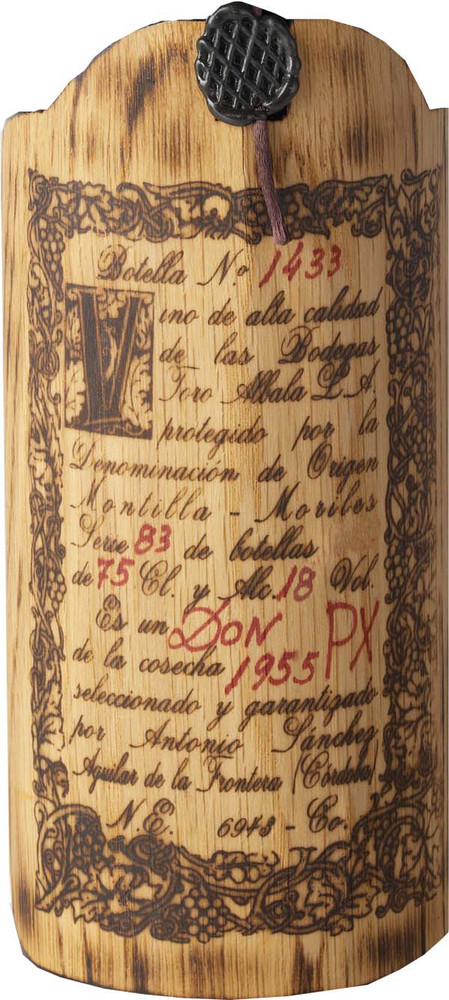 Botella Nº 1433
Vino de alta calidad
de las Bodegas
Toro Albala S.A.
protegido por la
Denominación de Origen
Montilla - Moriles
Serie 83 de botellas
de 75 Cl. y Alc. 18 Vol.
Es un DON PX
de la cosecha 1955
seleccionado y garantizado
por Antonio Sánchez
Aguilar de la Frontera (Córdoba)
N.E. 6943 - Co.